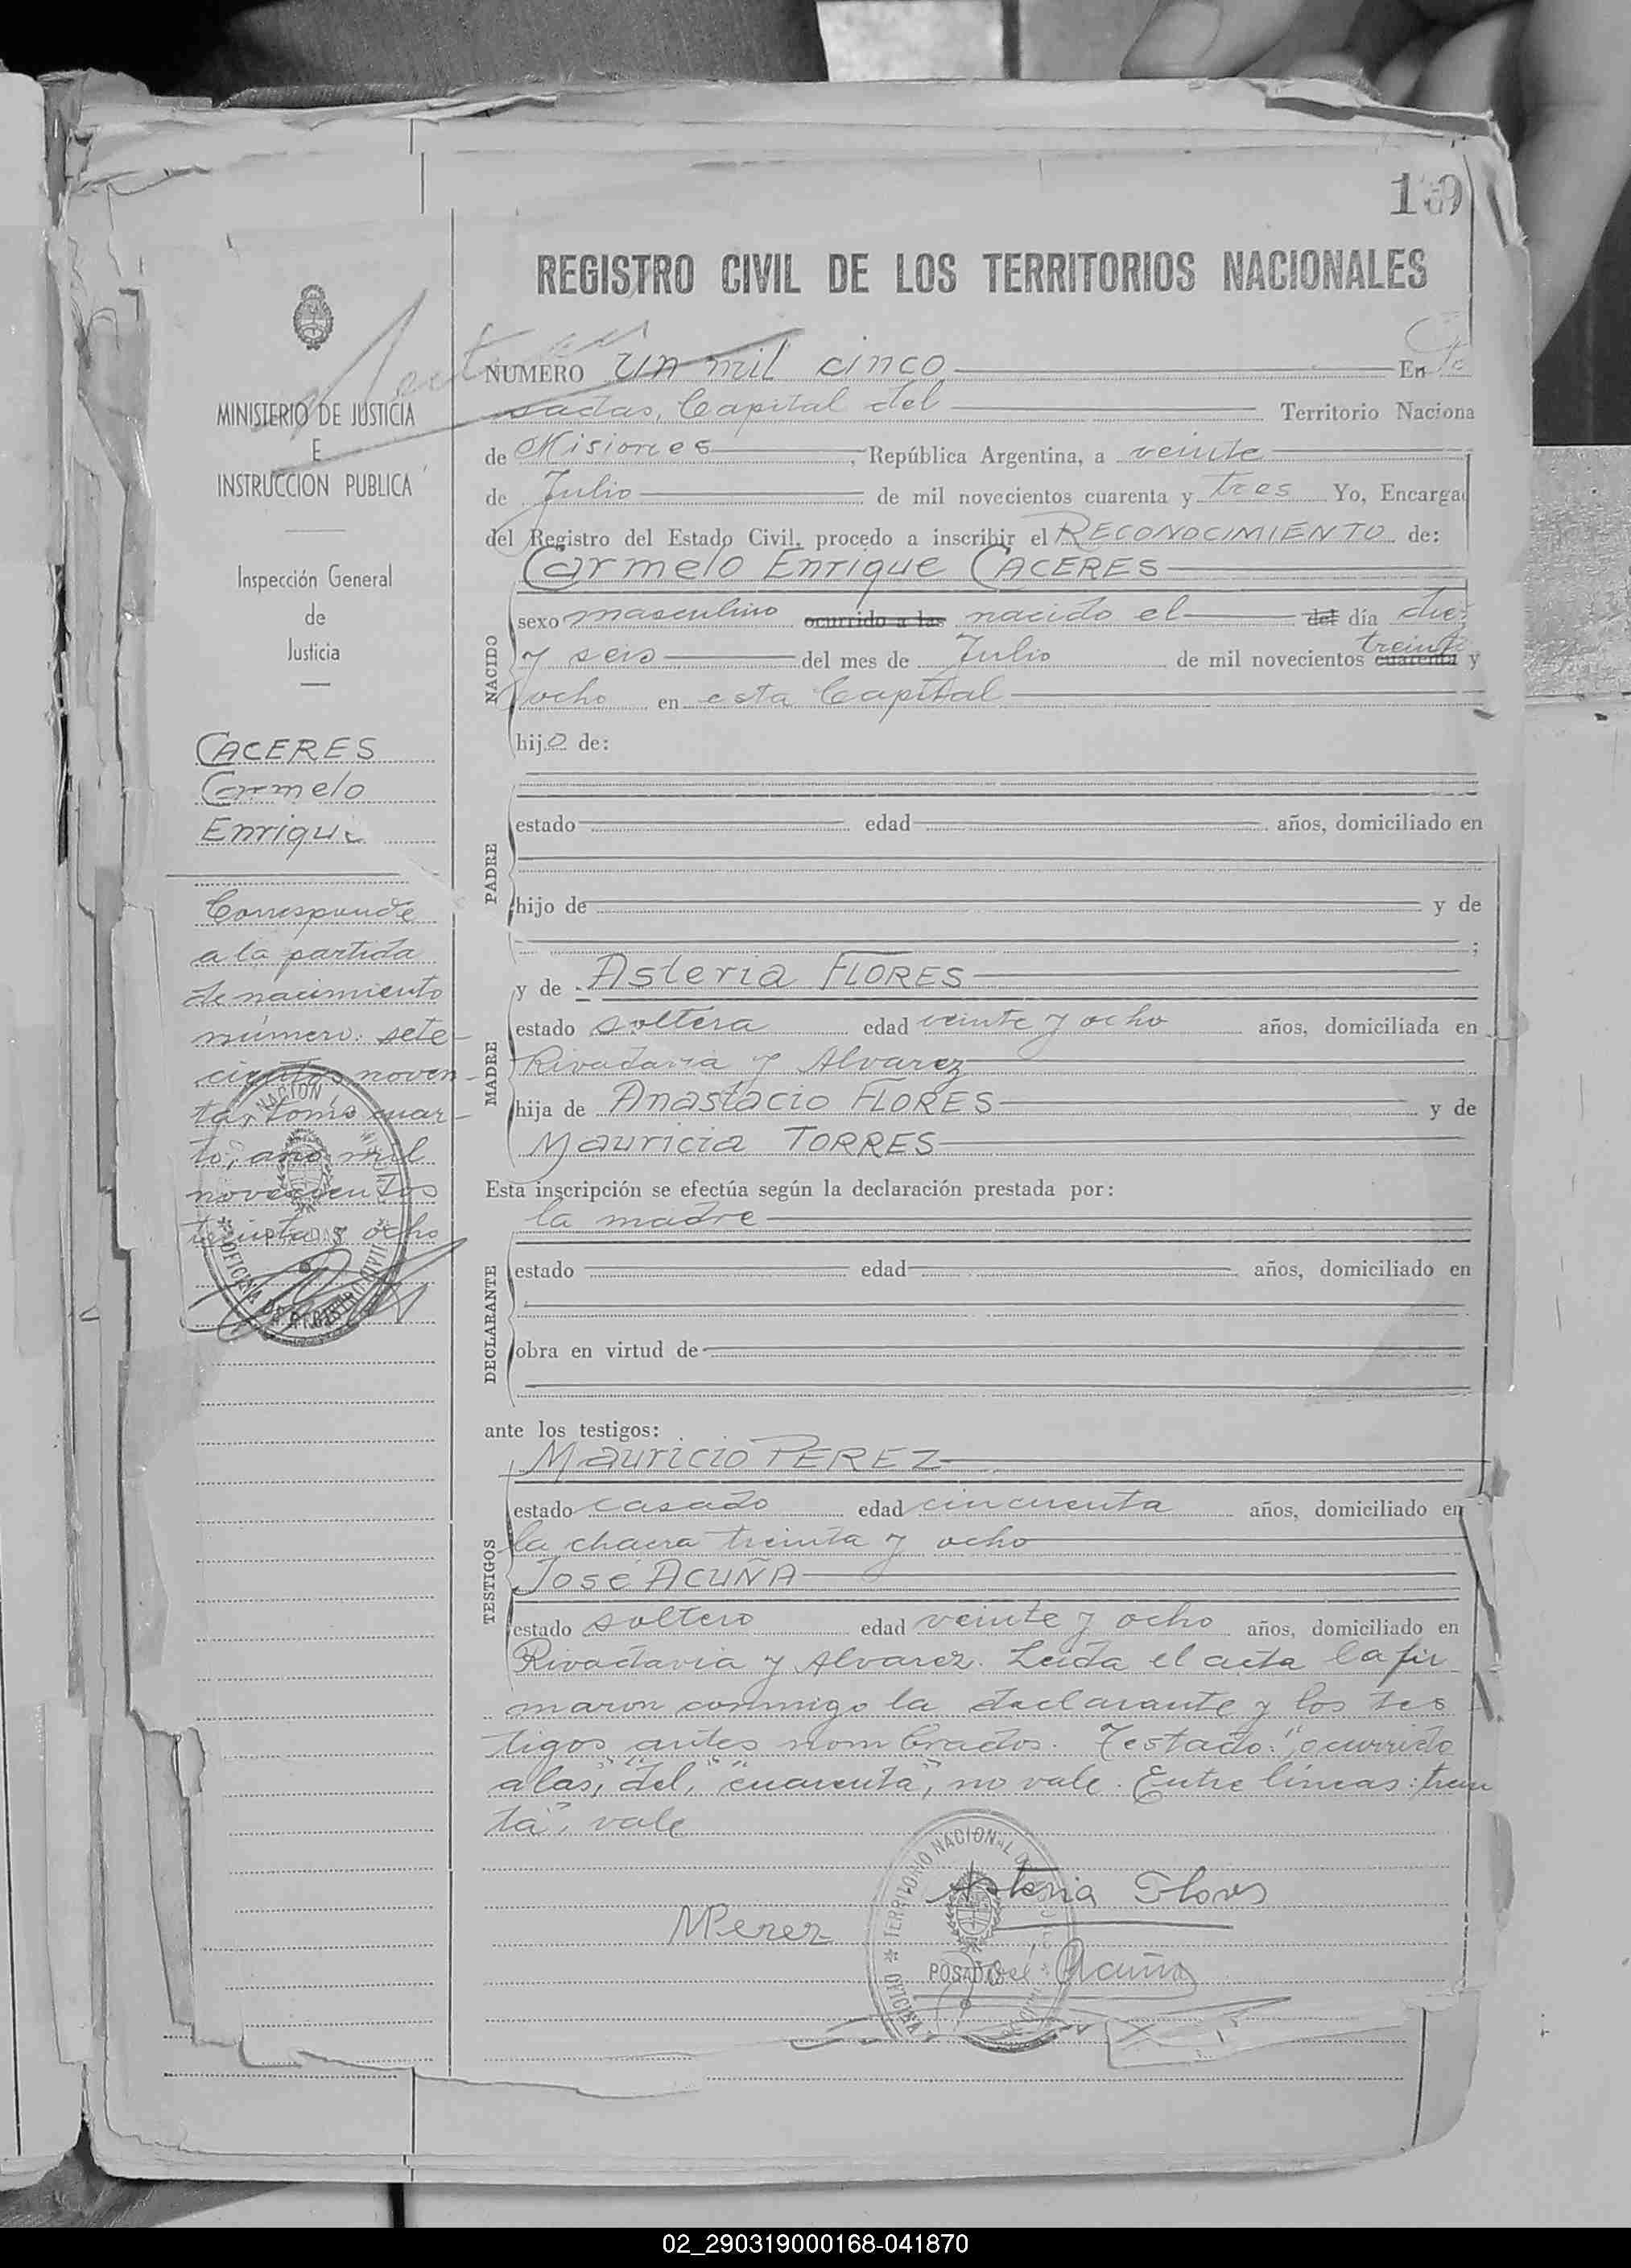 REGISTRO CIVIL DE LOS TERRITORIOS NACIONALES
MINISTERIO DE JUSTICIA
E
INSTRUCCION PUBLICA
Inspección General
de
Justicia
CACERES
Carmelo
Enrique
Corresponde
a la partida
de nacimiento
número: sete-
cientos noven-
ta, tomo cuar-
to, año mil
novecientos
treinta y ocho
NUMERO un mil cinco En Po
sadas, Capital del Territorio Naciona
de Misiones, República Argentina, a veinte
de Julio de mil novecientos cuarenta y tres Yo, Encargad
del Registro del Estado Civil, procedo a inscribir el RECONOCIMIENTO de:
Carmelo Enrique CACERES
NACIDO
sexo masculino ocurrido a las nacido el del día diez
y seis del mes de Julio de mil novecientos cuarenta treinta y
ocho en esta Capital
hijo de:
PADRE
estado edad años, domiciliado en
hijo de y de
;
MADRE
y de Asteria FLORES
estado soltera edad veinte y ocho años, domiciliada en
Rivadavia y Alvarez
hija de Anastacio FLORES y de
Mauricia TORRES
Esta inscripción se efectúa según la declaración prestada por:
la madre
DECLARANTE
estado edad años, domiciliado en
obra en virtud de
ante los testigos:
TESTIGOS
Mauricio PEREZ
estado casado edad cincuenta años, domiciliado en
la chacra treinta y ocho
José ACUÑA
estado soltero edad veinte y ocho años, domiciliado en
Rivadavia y Alvarez. Leida el acta la fir
maron conmigo la declarante y los tes
tigos antes nombrados. Testado: "ocurrido
a las", "del", "cuarenta", no vale. Entre líneas: trein
ta", vale
Asteria Flores
MPerez
José Acuña
TERRITORIO NACIONAL
POSADAS
OFICINA
02_290319000168-041870